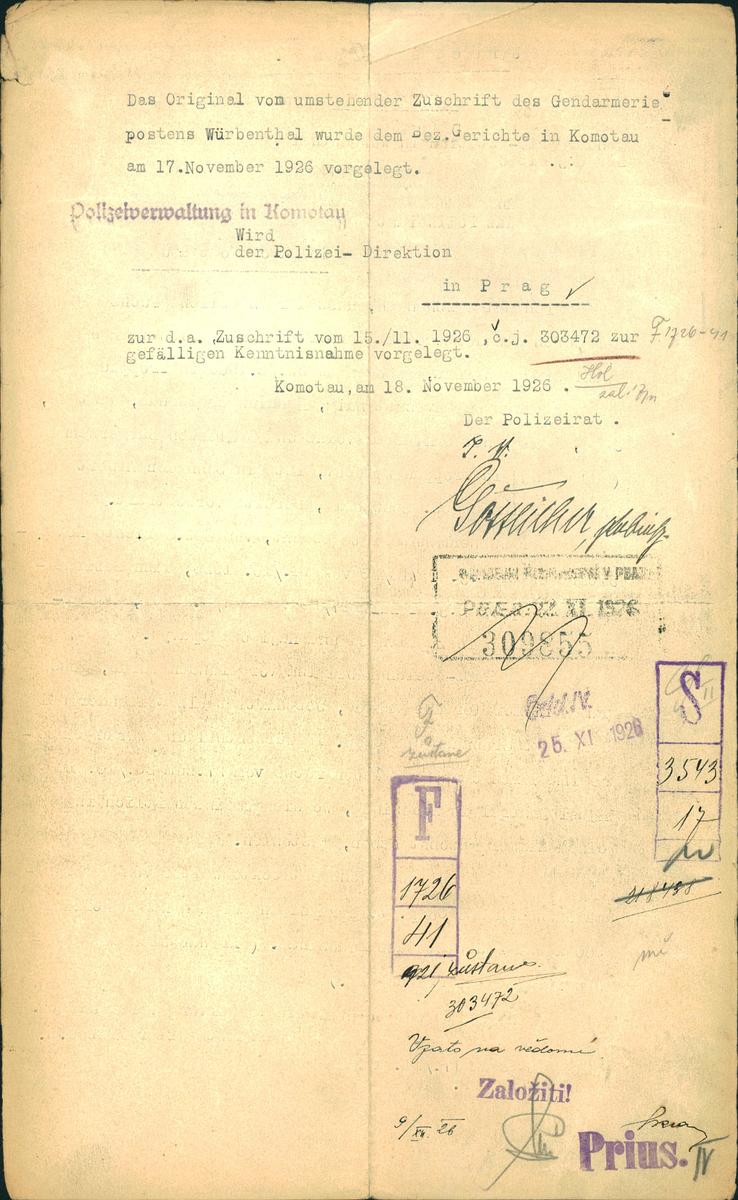 Das Original von umstehender Zuschrift des Gendarmerie-
postens Würbenthal wurde dem Bez.Gerichte in Komotau
am 17.November 1926 vorgelegt.
Polizeiverwaltung in Komotau
Wird
der Polizei- Direktion
in Prag
zur d.a. Zuschrift vom 15./11. 1926 ,č.j. 303472 zur F 1726-41
gefälligen Kenntnisnahme vorgelegt.
Komotau,am 18. November 1926 .
Der Polizeirat .
I. V.
22 XI 1926
309855
Odd.IV.
25. XI 1926
zůstane
S
3543
17
F
1726
41
921, zůstane
303472
Vzato na vědomí
Založiti!
9/XII. 26
Prius. IV